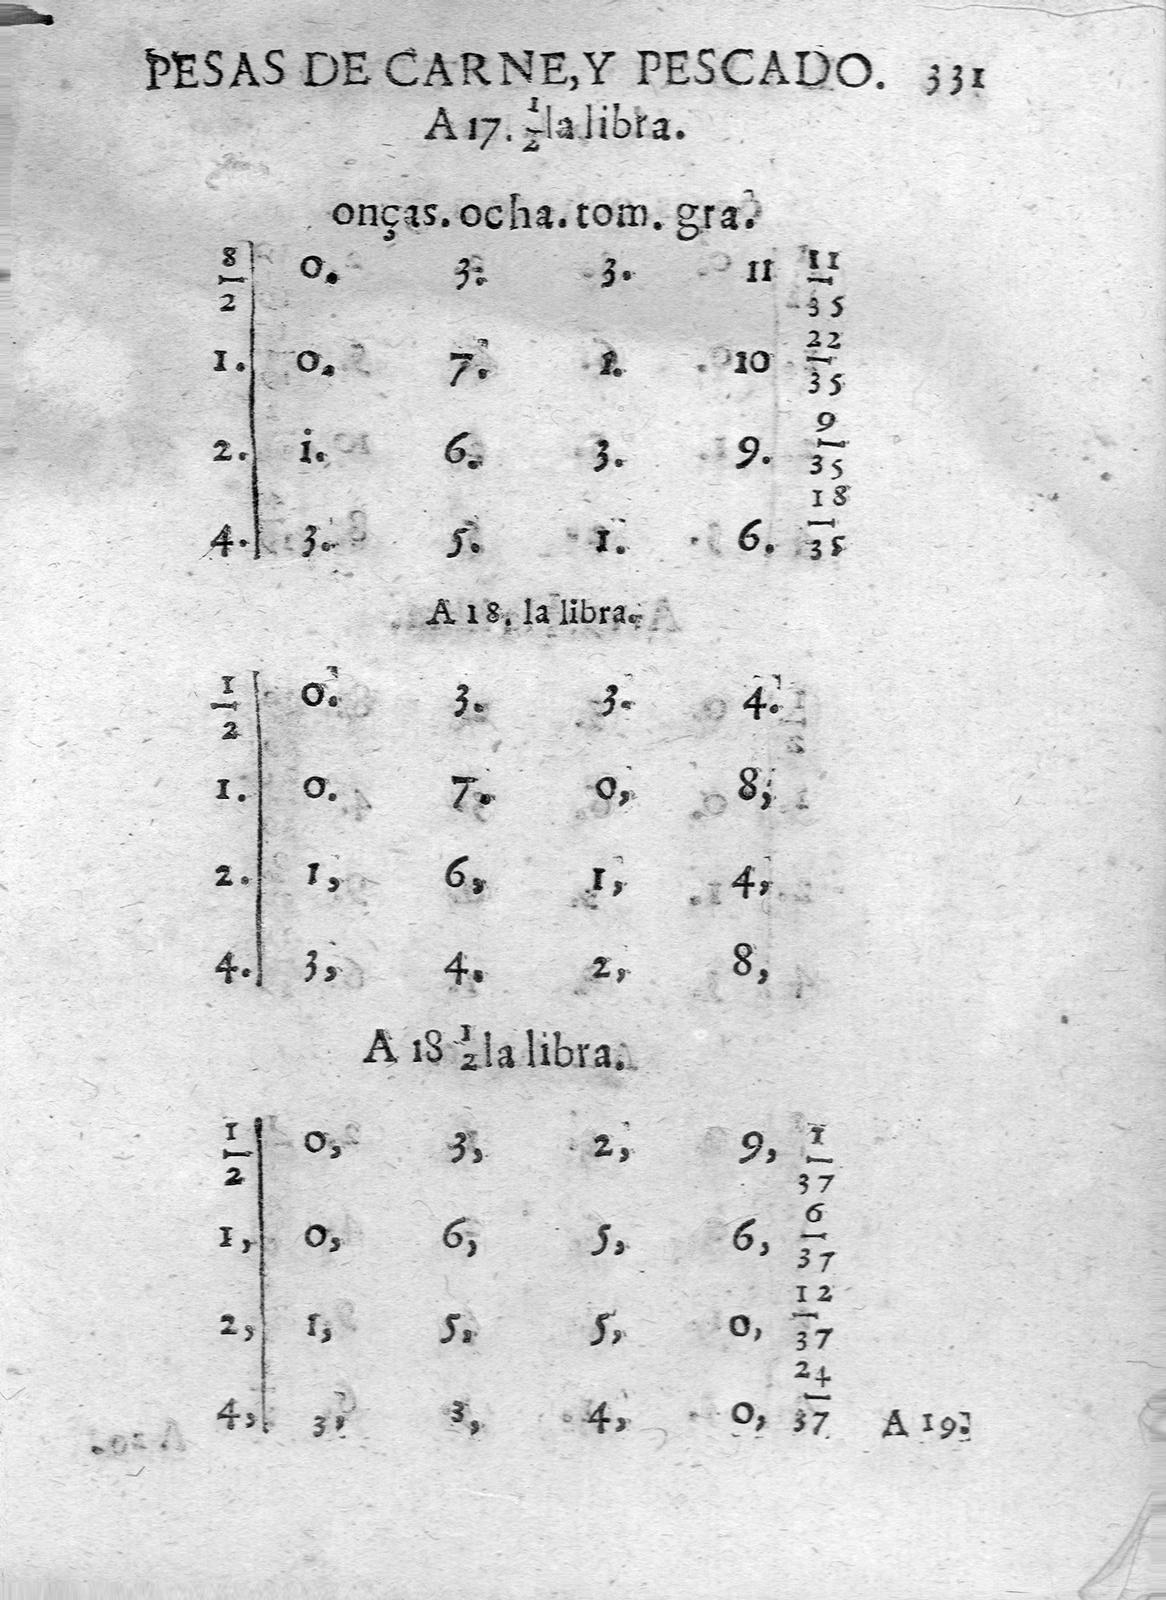 PESAS DE CARNE, Y PESCADO. 331
A 17. 1/2 la libra.
onças. ocha. tom. gra.
8/2 0. 3. 3. 11 11/35
1. 0. 7. 1. 10 22/35
2. 1. 6. 3. 9. 9/35
4. 3. 5. 1. 6. 18/35
A 18. la libra.
1/2 0. 3. 3. 4.
1. 0. 7. 0, 8,
2. 1, 6, 1, 4,
4. 3, 4. 2, 8,
A 18 1/2 la libra.
1/2 0, 3, 2, 9, 1/37
1, 0, 6, 5, 6, 6/37
2, 1, 5, 5, 0, 12/37
4, 3, 3, 4, 0, 24/37 A 19.